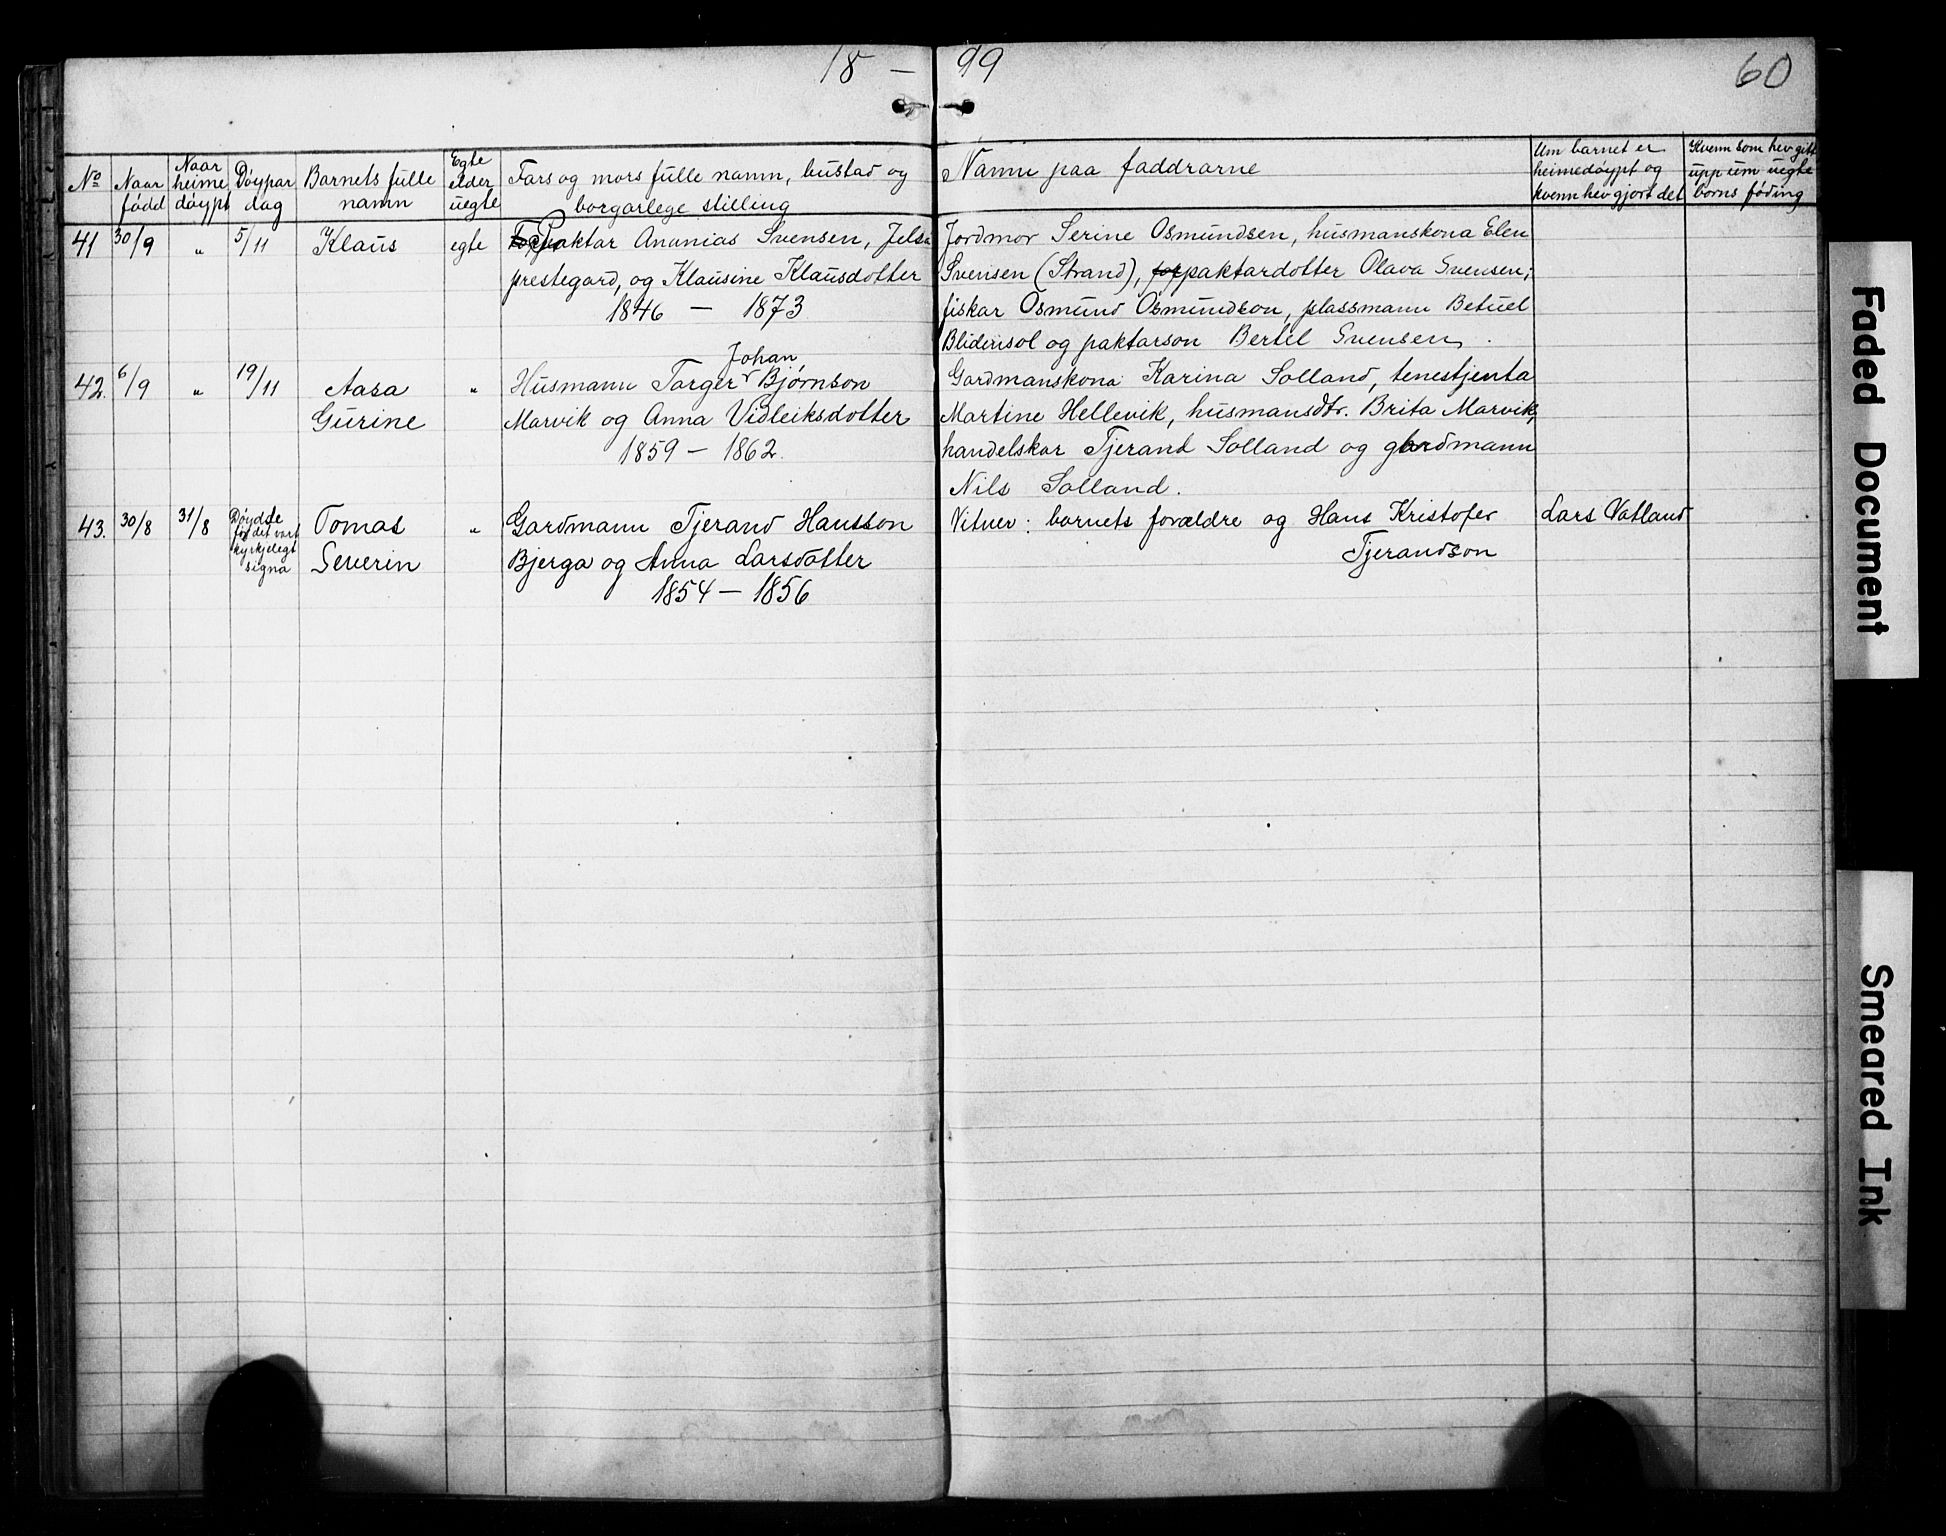 18 — 99
60
No
Naar fødd
Naar heime døypt
Døypar dag
Barnets fulle namn
Egte elder uegte
Fars og mors fulle namn, bustad og borgarlege stilling
Namn paa faddrarne
Um barnet er heimedøypt og kvenn hev gjort det
Kvenn som hev gitt upp um uegte borns føding
41 30/9 " 5/11 Klaus egte Paktar Ananias Svensen, Jelsa
prestegard, og Klausine Klausdotter
1846 — 1873
Jordmor Serine Osmundsen, husmanskona Elen
Svensen (Strand), paktardotter Olava Svensen;
fiskar Osmund Osmundson, plassmann Betuel
Blidensol og paktarson Bertel Svensen.
42. 6/9 " 19/11 Aasa Gurine " Husmann Torger Johan Bjørnson
Marvik og Anna Vidleiksdotter
1859 — 1862.
Gardmanskona Karina Solland, tenestjenta
Martine Hellevik, husmansdtr. Brita Marvik,
handelskar Tjerand Solland og gardmann
Nils Solland.
43. 30/8 31/8 Døydde før det vart kyrkjelegt signa Tomas Severin " Gardmann Tjerand Hansson
Bjerga og Anna Larsdotter
1854 — 1856
Vitner: barnets forældre og Hans Kristofer
Tjerandson
Lars Vatland
Faded Document
Smeared Ink